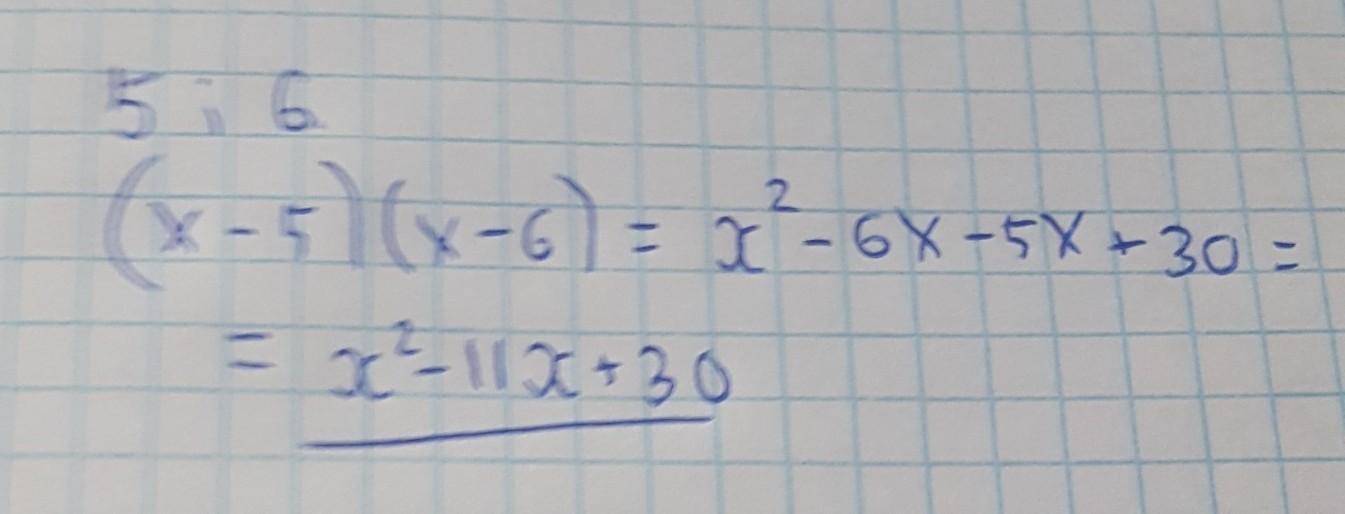 5 ; 6
(x - 5)(x - 6) = x² - 6x - 5x + 30 =
= x² - 11x + 30